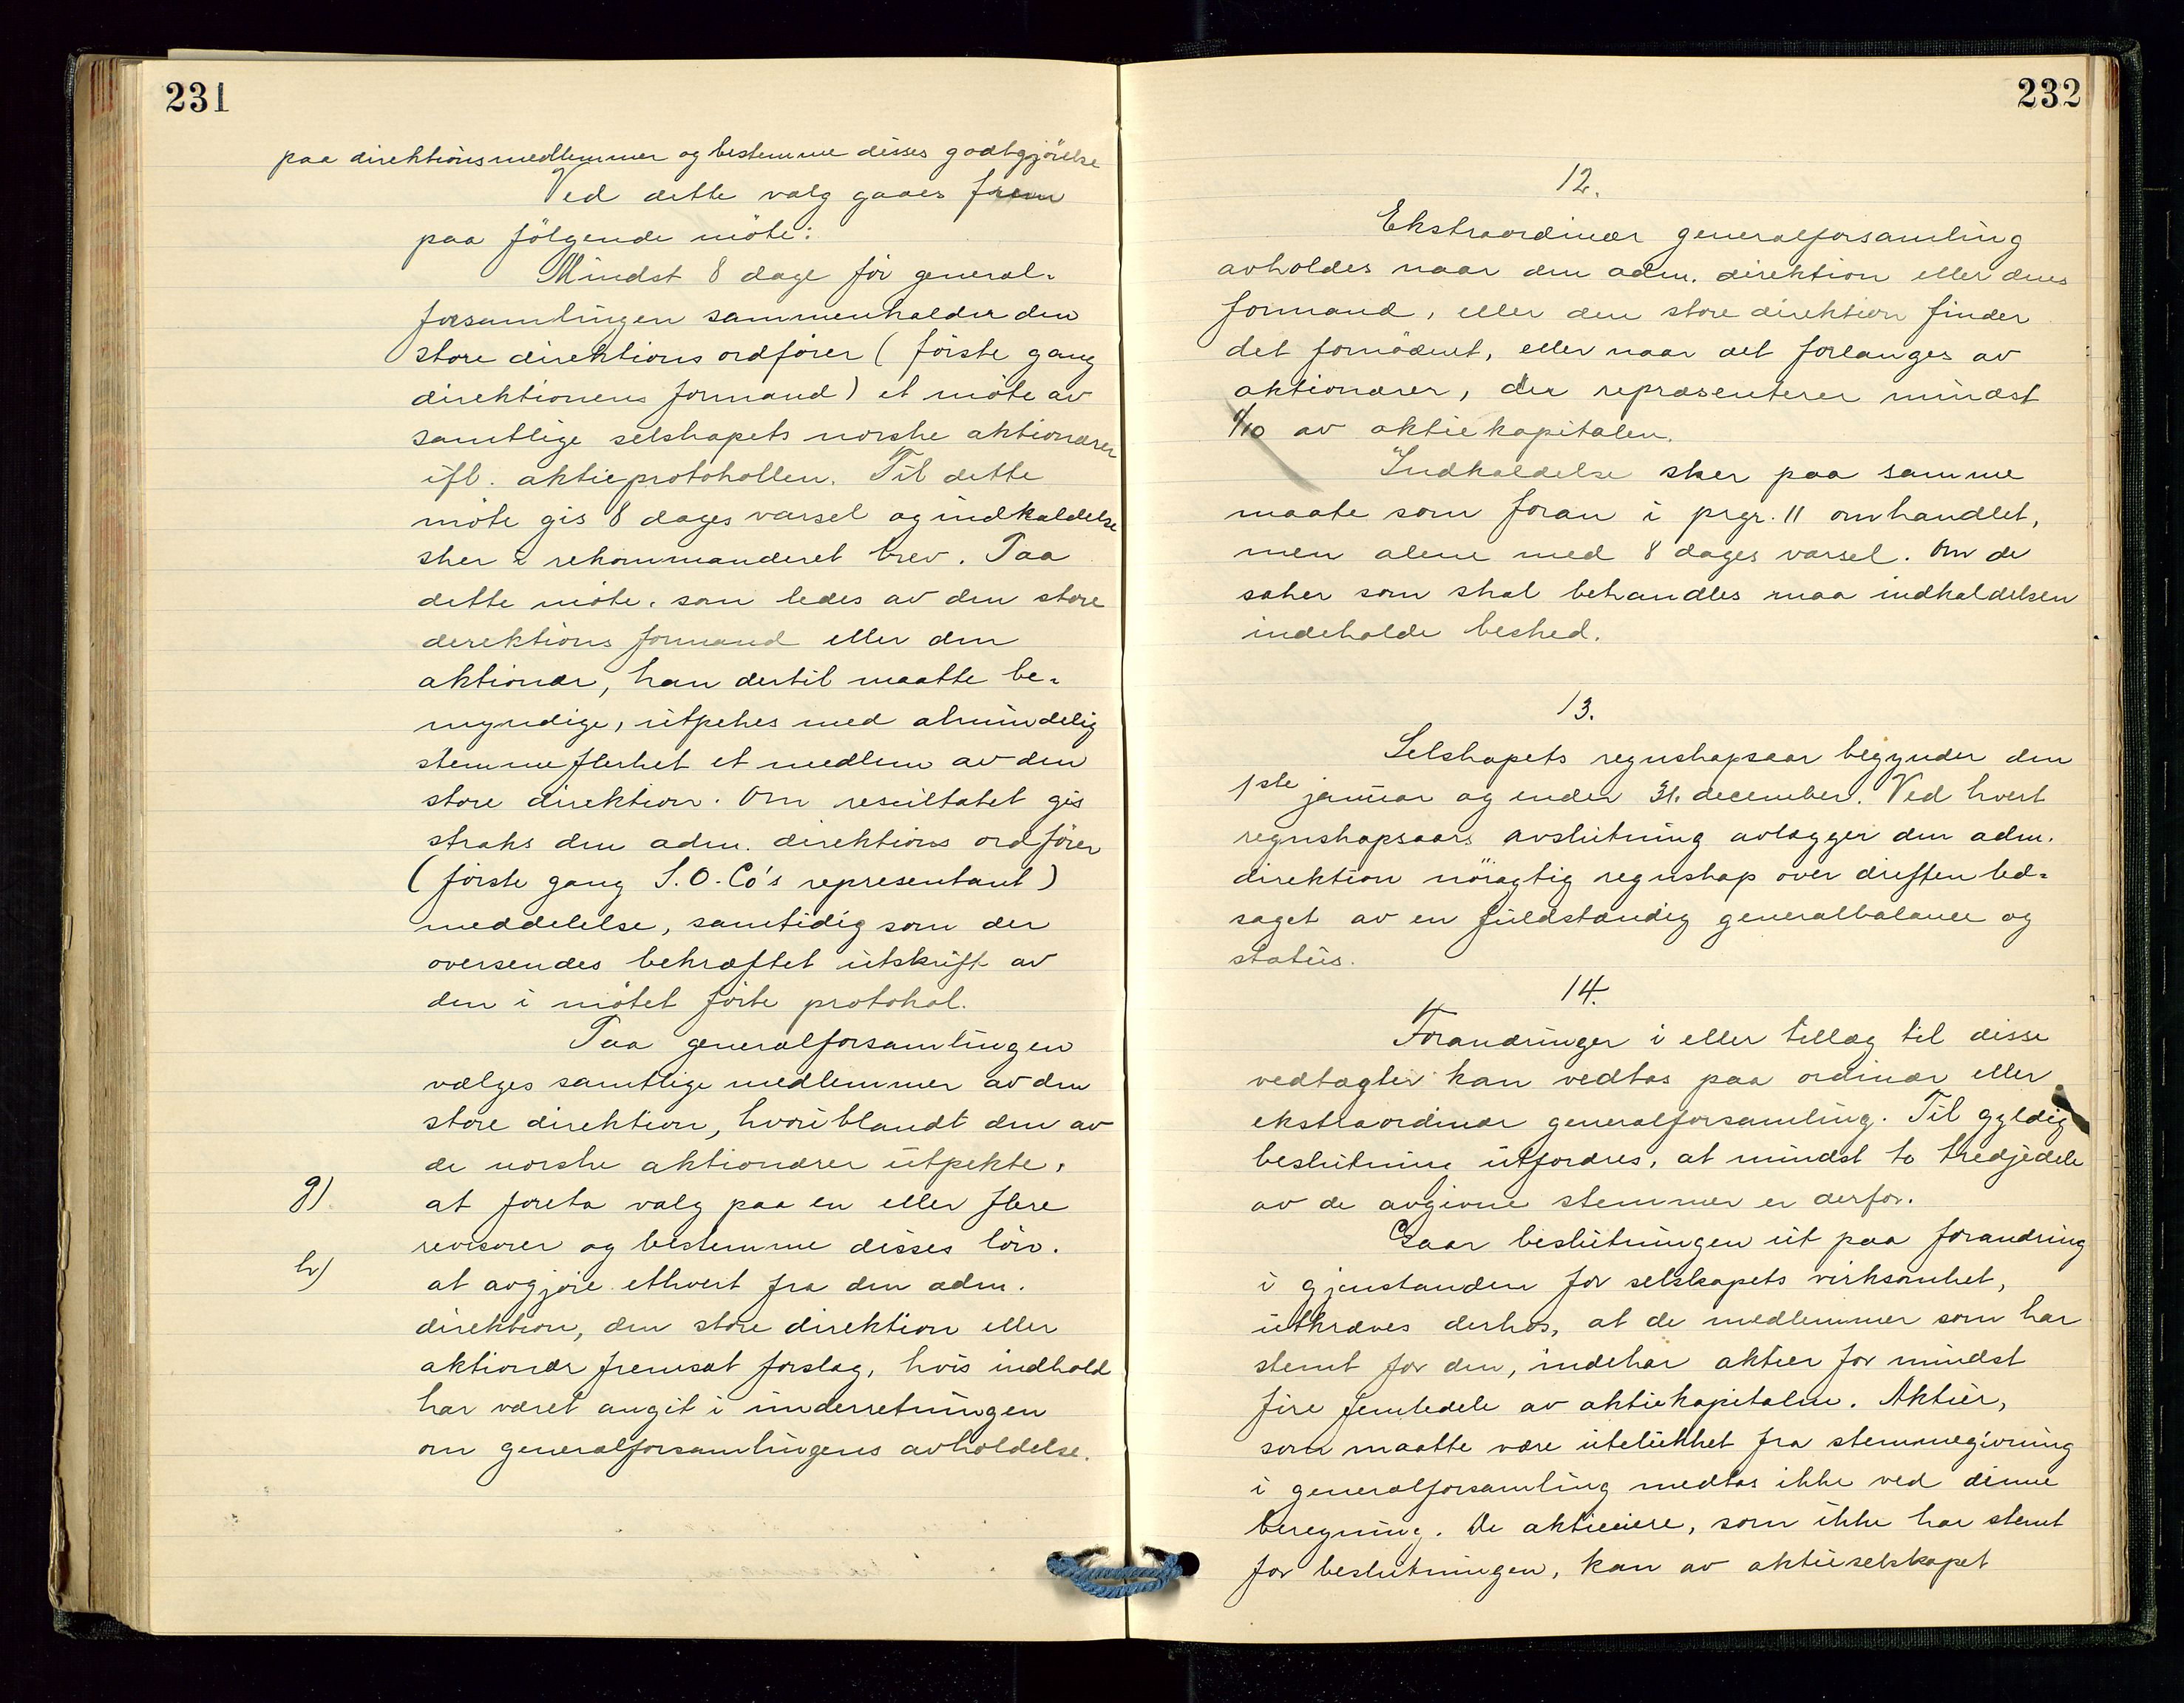 231
paa direktionsmedlemmer og bestemme disses godtgjörelse
Ved dette valg gaaes frem
paa fölgende möte:
Mindst 8 dage för general-
forsamlingen sammenkalder den
store direktions ordförer (förste gang
direktionens formand) et möte av
samtlige selskapets norske aktionærer
ifl. aktieprotokollen. Til dette
möte gis 8 dages varsel og indkaldelse
sker i rekommanderet brev. Paa
dette möte, som ledes av den store
derektions formand eller den
aktionær, han dertil maatte be-
myndige, utpekes med almindelig
stemmeflerhet et medlem av den
store direktion. Om resultatet gis
straks den adm. direktions ordförer
(förste gang S.O.Co's representant)
meddelelse, samtidig som der
oversendes bekræftet utskrift av
den i mötet förte protokol.
Paa generalforsamlingen
vælges samtlige medlemmer av den
store direktion, hvoriblandt den av
de norske aktionærer utpekte,
g) at foreta valg paa en eller flere
revisorer og bestemme disses lön.
h) at avgjöre ethvert fra den adm.
direktion, den store direktion eller
aktionær fremsat forslag, hvis indhold
har været angit i underretningen
om generalforsamlingens avholdelse.
232
12.
Ekstraordinær generalforsamling
avholdes naar den adm. direktion eller dens
formand, eller den store direktion finder
det fornödent, eller naar det forlanges av
aktionærer, der repræsenterer mindst
1/10 av aktiekapitalen.
Indkaldelse sker paa samme
maate som foran i prgr. 11 omhandlet,
men alene med 8 dages varsel. Om de
saker som skal behandles maa indkaldelsen
indeholde besked.
13.
Selskapets regnskapsaar begynder den
1ste januar og ender 31. december. Ved hvert
regnskapsaars avslutning avlægger den adm.
direktion nöiagtig regnskap over driften led-
saget av en fuldstændig generalbalance og
status.
14.
Forandringer i eller tillæg til disse
vedtægter kan vedtas paa ordinær eller
ekstraordinær generalforsamling. Til gyldig
beslutning utfordres, at mindst to tredjedele
av de avgivne stemmer er derfor.
Gaar beslutningen ut paa forandring
i gjenstanden for selskapets virksomhet,
utkræves derhos, at de medlemmer som har
stemt for den, indehar aktier for mindst
fire femtedele av aktiekapitalen. Aktier,
som maatte være utelukket fra stemmegivning
i generalforsamling medtas ikke ved denne
beregning. De aktieeiere, som ikke har stemt
for beslutningen, kan av aktieselskapet